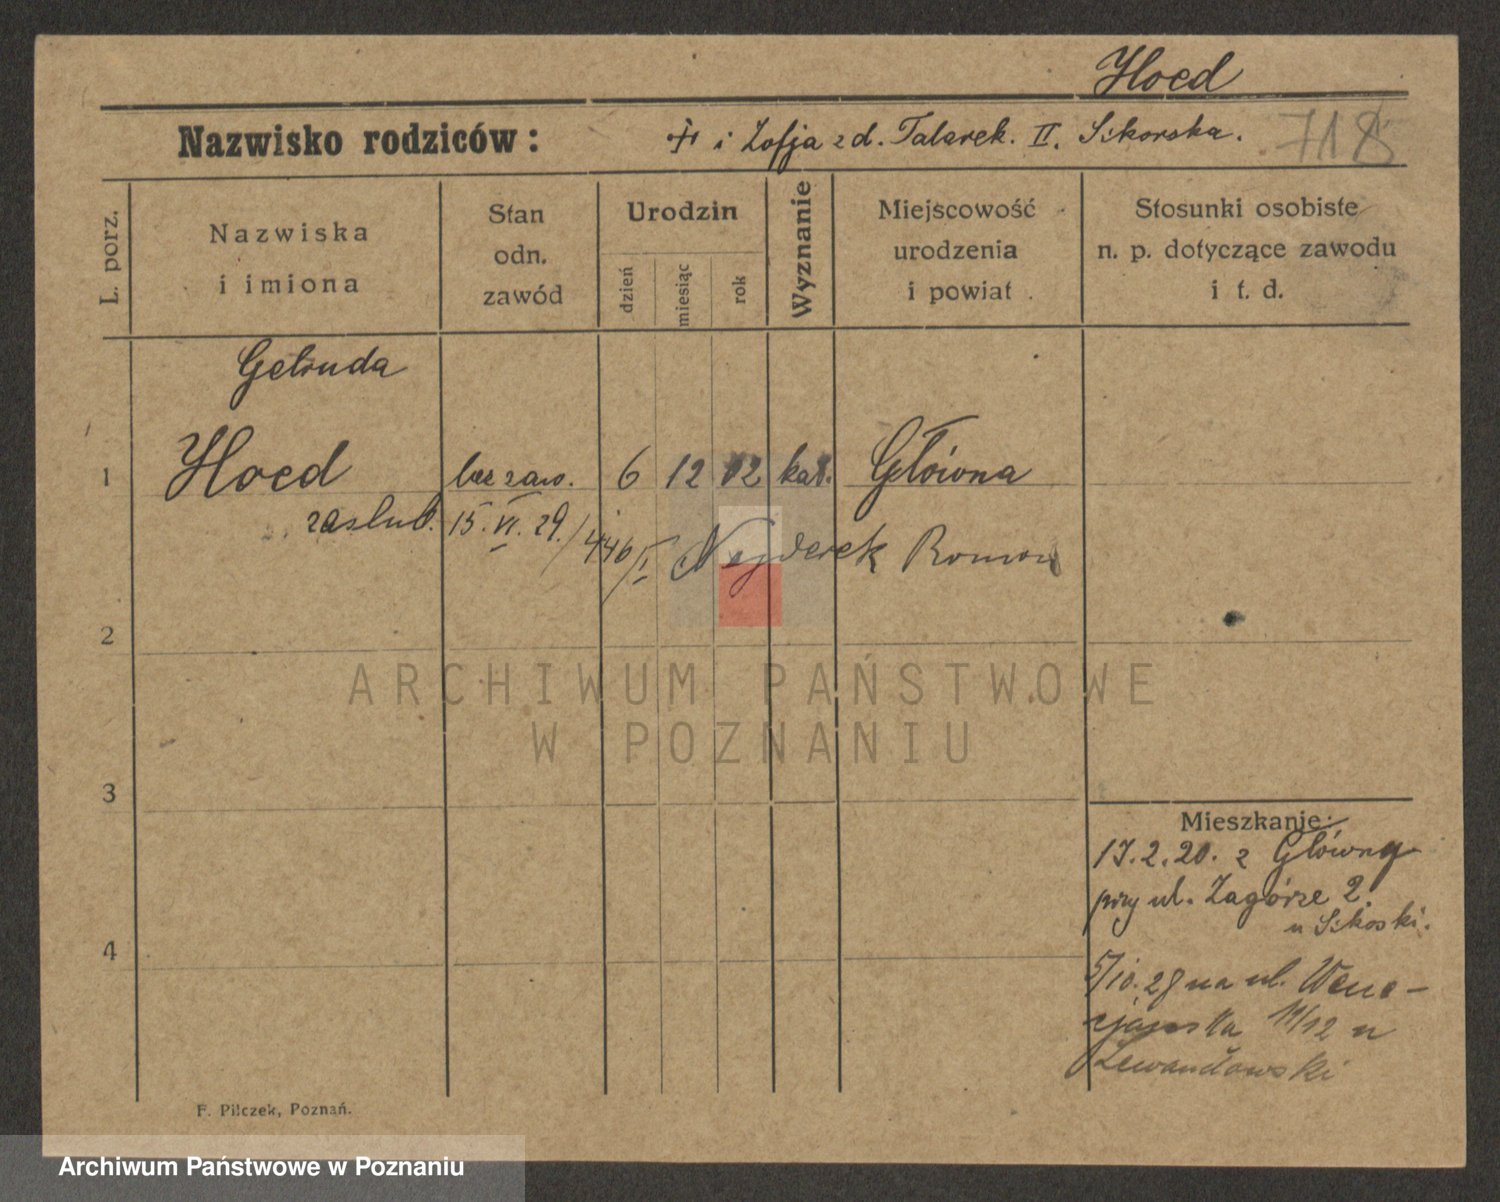 Hoed
Nazwisko rodziców: + i Zofja z d. Talarek. II. Sikorska. 718
L. porz.
Nazwiska
i imiona
Stan
odn.
zawód
Urodzin
dzień
miesiąc
rok
Wyznanie
Miejscowość
urodzenia
i powiat
Stosunki osobiste
n. p. dotyczące zawodu
i t. d.
Getruda
1 Hoed bez zaw. 6 12 02 kat. Główna
zaślub. 15. VI. 29. /446/I Najderek Roman
2
ARCHIWUM PAŃSTWOWE
W POZNANIU
3
Mieszkanie:
17.2.20. z Główny
przy ul. Zagórze 2.
u Sikoski.
4
5/10.28 na ul. Wene-
cjańska 11/12 u
Lewandowski
F. Pilczek, Poznań.
Archiwum Państwowe w Poznaniu